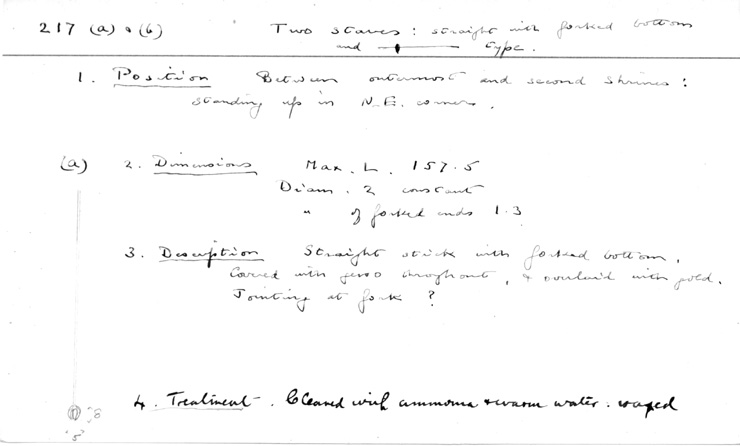 217 (a) & (b) Two staves: straight with forked bottom
and type.
1. Position Between outermost and second shrines:
standing up in N.E. corner.
(a) 2. Dimensions Max. L. 157.5
Diam. 2 constant
" of forked ends 1.3
3. Description Straight stick with forked bottom.
Covered with gesso throughout, & overlaid with gold.
Jointing at fork?
4. Treatment. Cleaned with ammonia & warm water. waxed
.8
.5